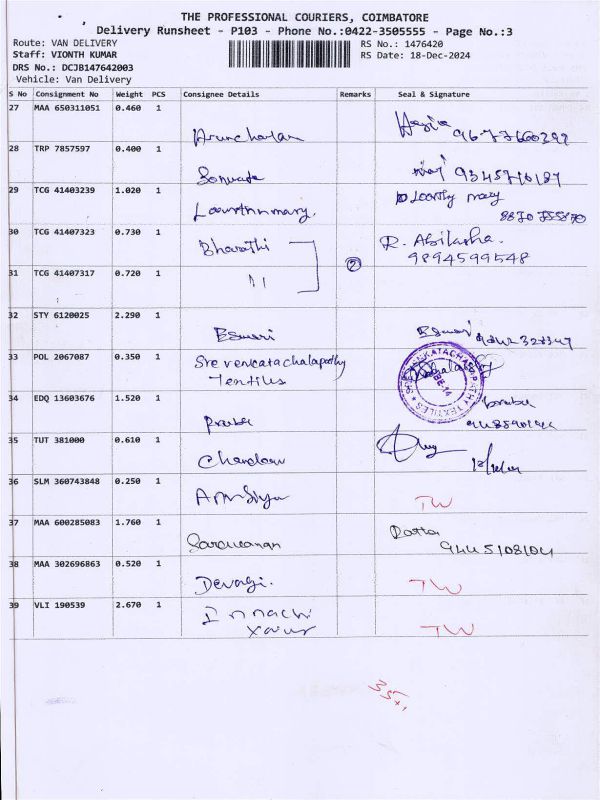 THE PROFESSIONAL COURIERS, COIMBATORE
Delivery Runsheet - P103 - Phone No.:0422-3505555 - Page No.:3
Route: VAN DELIVERY
RS No.: 1476420
Staff: VIONTH KUMAR
RS Date: 18-Dec-2024
DRS No.: DCJB147642003
Vehicle: Van Delivery
S No Consignment No Weight PCS Consignee Details Remarks Seal & Signature
27 MAA 650311051 0.460 1
Arunchalam
28 TRP 7857597 0.400 1
29 TCG 41403239 1.020 1
mary
8870 755870
30 TCG 41407323 0.730 1
Bharathi
2
R. Abilasha.
9894599548
31 TCG 41407317 0.720 1
11
32 STY 6120025 2.290 1
Eswari
Eswari
33 POL 2067087 0.350 1
Sre venkatachalapathy
Textiles
34 EDQ 13603676 1.520 1
35 TUT 381000 0.610 1
36 SLM 360743848 0.250 1
TW
37 MAA 600285083 1.760 1
Saravanan
9445108104
38 MAA 302696863 0.520 1
Devagi.
TW
39 VLI 190539 2.670 1
Innachi
TW